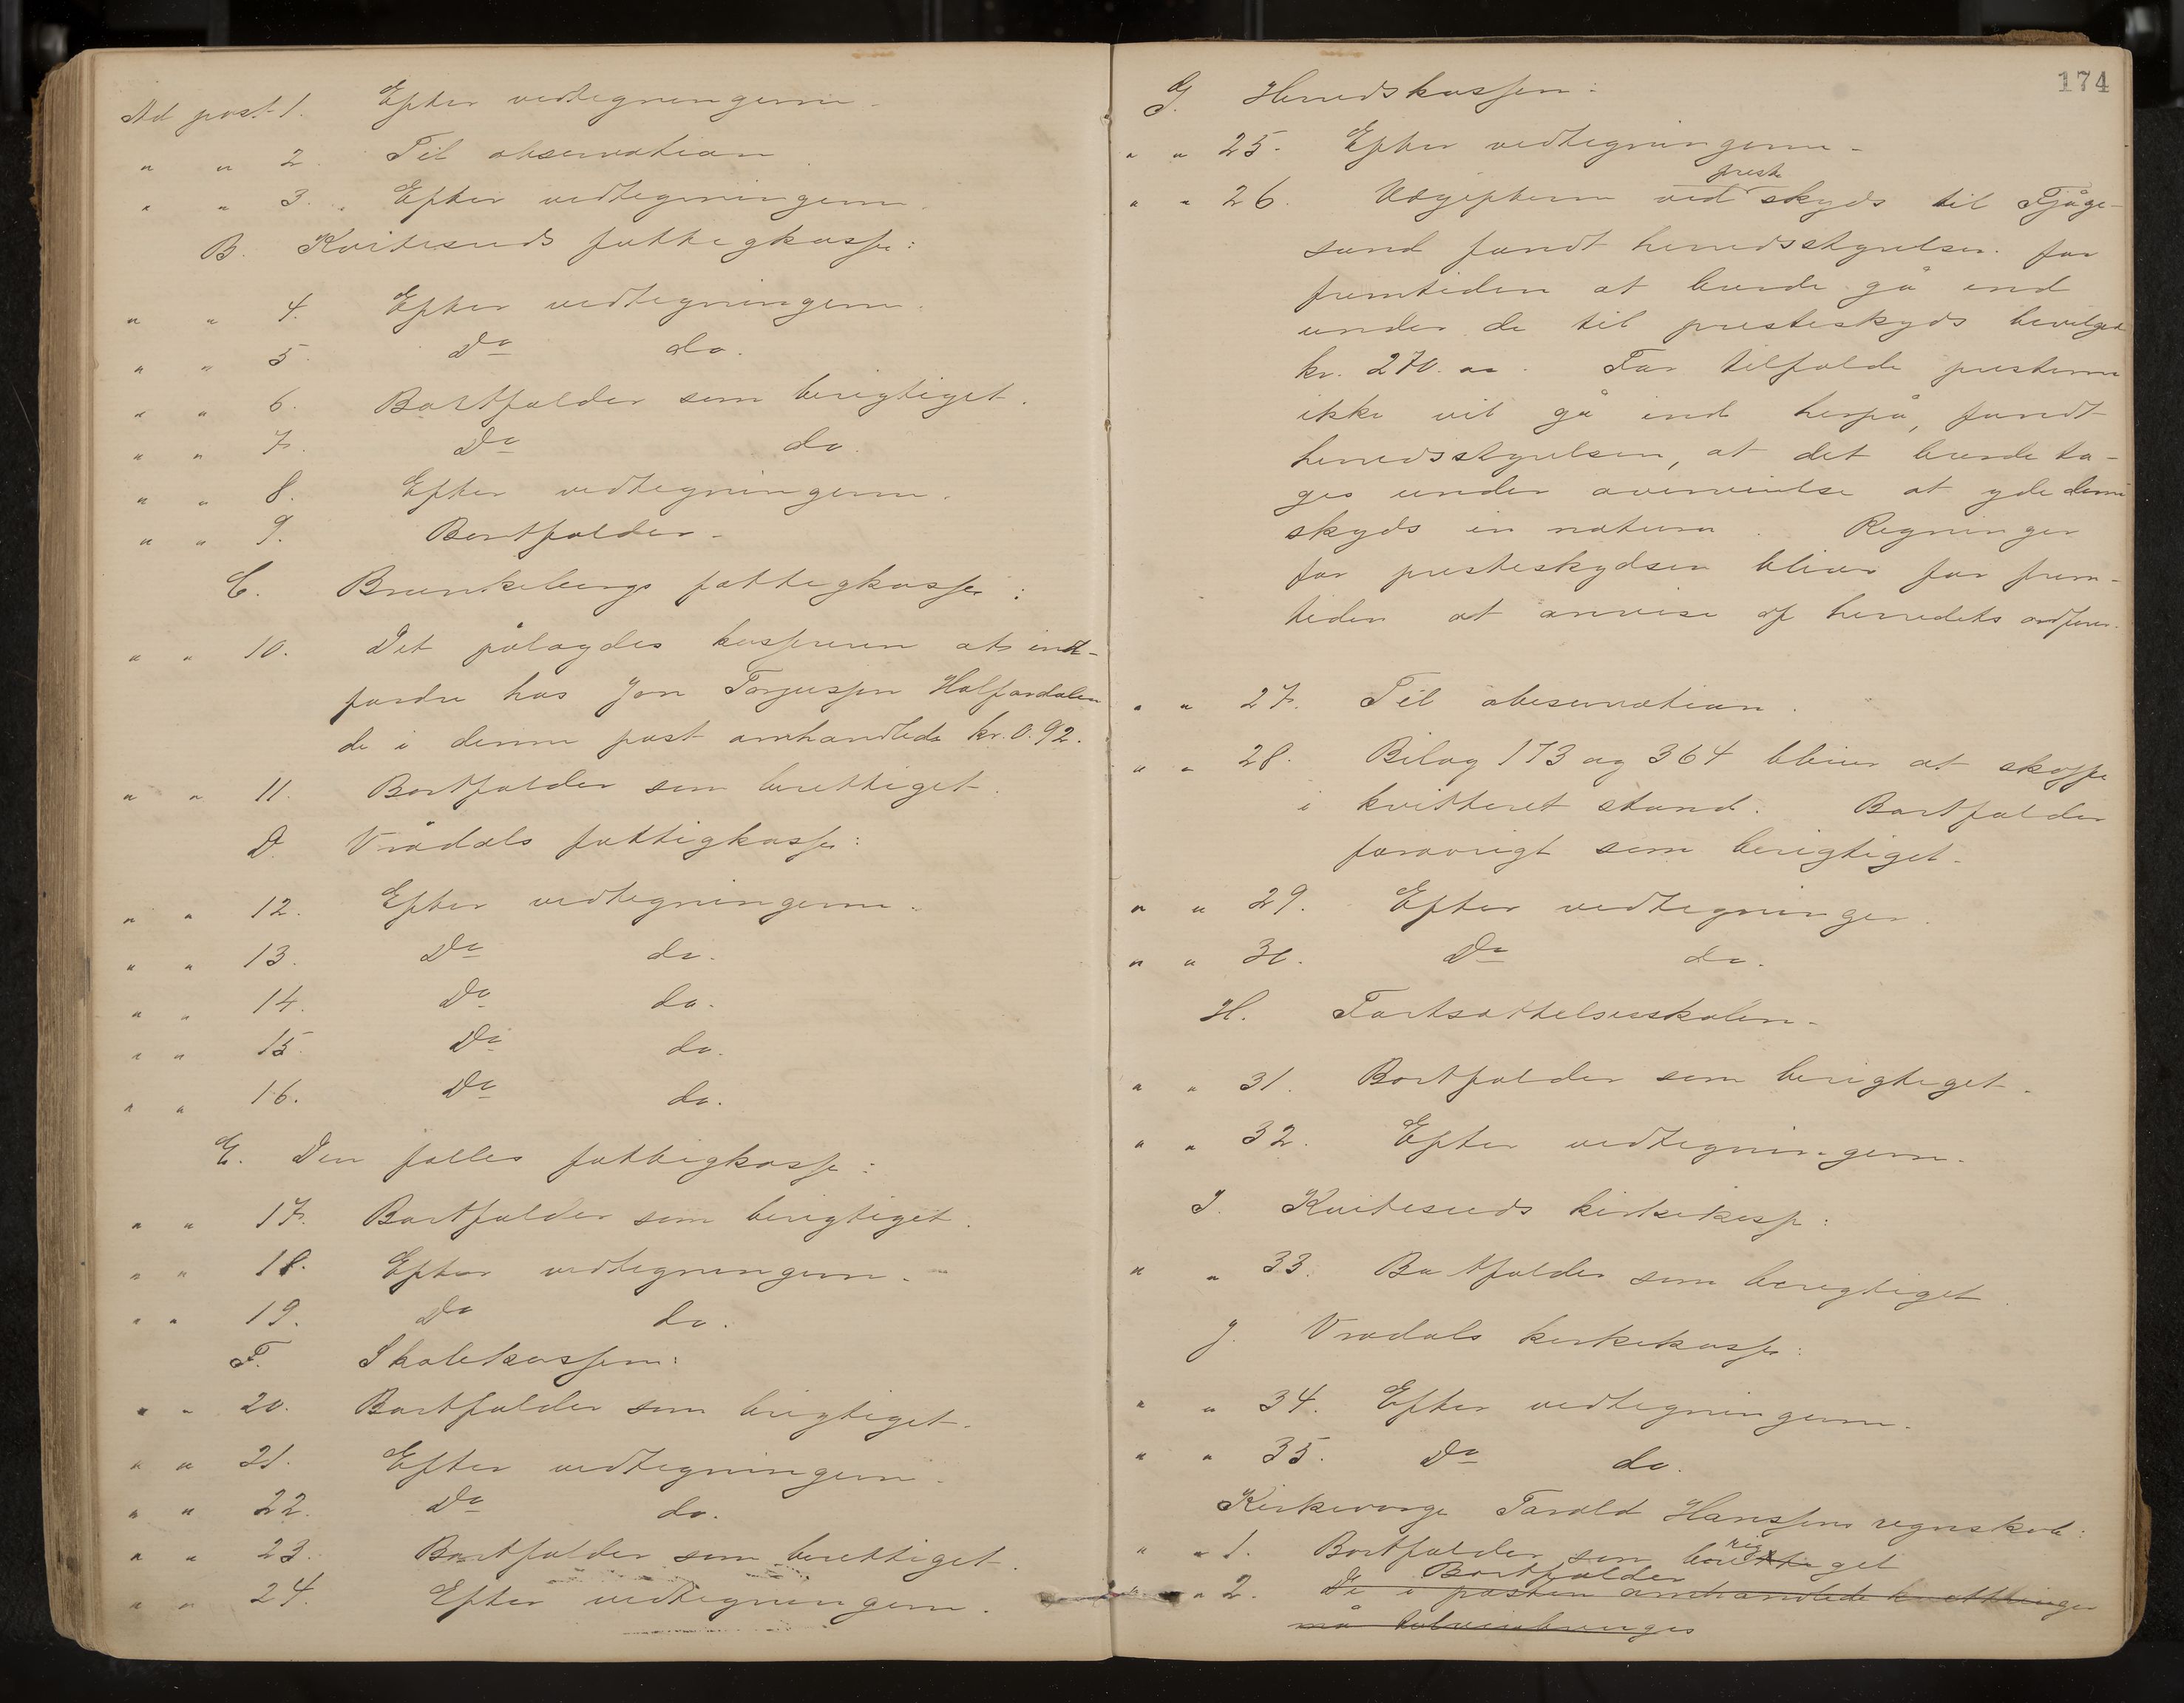 Ad post 1. Efter vedtegningerne.
" " 2. Til observation.
" " 3. Efter vedtegningerne.
B. Kviteseids fattigkasse:
" " 4. Efter vedtegningerne.
" " 5. Do do.
" " 6. Bortfalder som berigtiget.
" " 7. Do do.
" " 8. Efter vedtegningerne.
" " 9. Bortfalder.
C. Brunkebergs fattigkasse:
" " 10. Det pålagdes kassereren at ind-
fordre hos Jon Torjussen Halfardalen
de i denne post omhandlede kr. 0.92.
" " 11. Bortfalder som berettiget.
D. Vrådals fattigkasse:
" " 12. Efter vedtegningerne.
" " 13. Do do.
" " 14. Do do.
" " 15. Do do.
" " 16. Do do.
E. Den fælles fattigkasse:
" " 17. Bortfalder som berigtiget.
" " 18. Efter vedtegningerne.
" " 19. Do do.
F. Skolekassen:
" " 20. Bortfalder som berigtiget.
" " 21. Efter vedtegningerne.
" " 22. Do do.
" " 23. Bortfalder som berettiget.
" " 24. Efter vedtegningerne.
174
G. Herredskassen:
" " 25. Efter vedtegningerne.
" " 26. Udgifterne ved preste skyds til Fjåge-
sund fandt herredsstyrelsen for
fremtiden at burde gå ind
under de til presteskyds bevilgede
kr. 270.00. For tilfælde presterne
ikke vil gå ind herpå, fandt
herredsstyrelsen, at det burde ta-
ges under overveielse at yde denne
skyds in natura. Regninger
for presteskydsen bliver for frem-
tiden at anvise af herredets ordfører.
" " 27. Til observation.
" " 28. Bilag 173 og 364 bliver at skaffe
i kvitteret stand. Bortfalder
forøvrigt som berigtiget.
" " 29. Efter vedtegninger.
" " 30. Do do.
H. Fortsættelsesskolen.
" " 31. Bortfalder som berigtiget.
" " 32. Efter vedtegningerne.
I. Kviteseids kirkekasse:
" " 33. Bortfalder som berigtiget.
J. Vradals kirkekasse:
" " 34. Efter vedtegningerne.
" " 35. Do do.
Kirkeverge Tarald Hanssens regnskab:
" " 1. Bortfalder som berigtiget
" " 2. Bortfalder
De i posten omhandlede
må